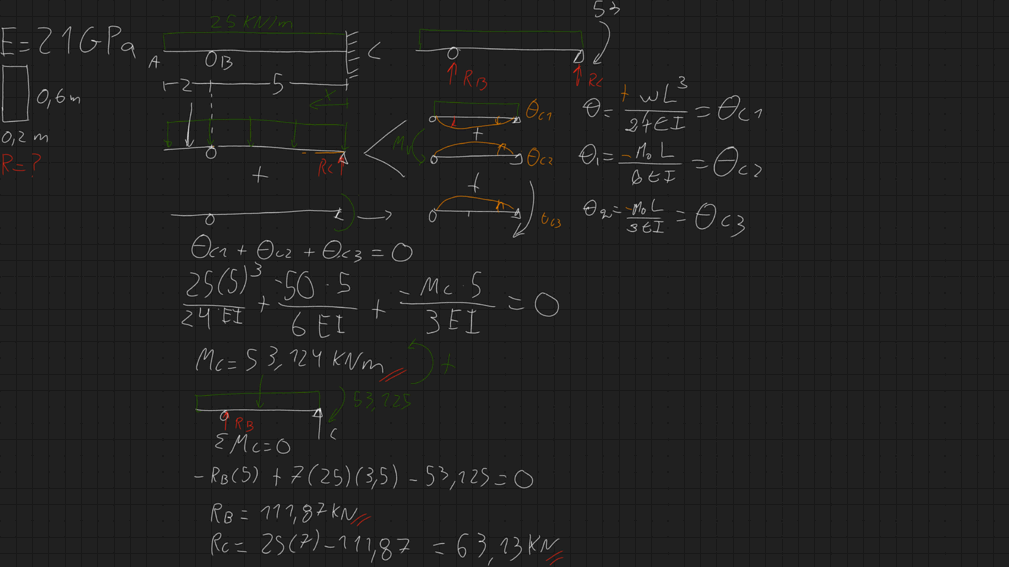 E=21GPa
0,6m
0,2 m
R=?
25 KN/m
A
B
C
2
5
x
Rc
+
53
RB
Rc
θc1
+
M
θc2
+
θc3
θ = + wL³/24EI = θc1
θ1 = -M0 L/6EI = θc2
θ2 = -M0 L/3EI = θc3
θc1 + θc2 + θc3 = 0
25(5)³/24 EI + -50·5/6 EI + -Mc·5/3 EI = 0
Mc = 53,124 KNm
+
53,125
RB
C
ΣMc=0
-RB(5) + 7(25)(3,5) - 53,125 = 0
RB = 111,87KN
Rc = 25(7) - 111,87 = 63,13KN